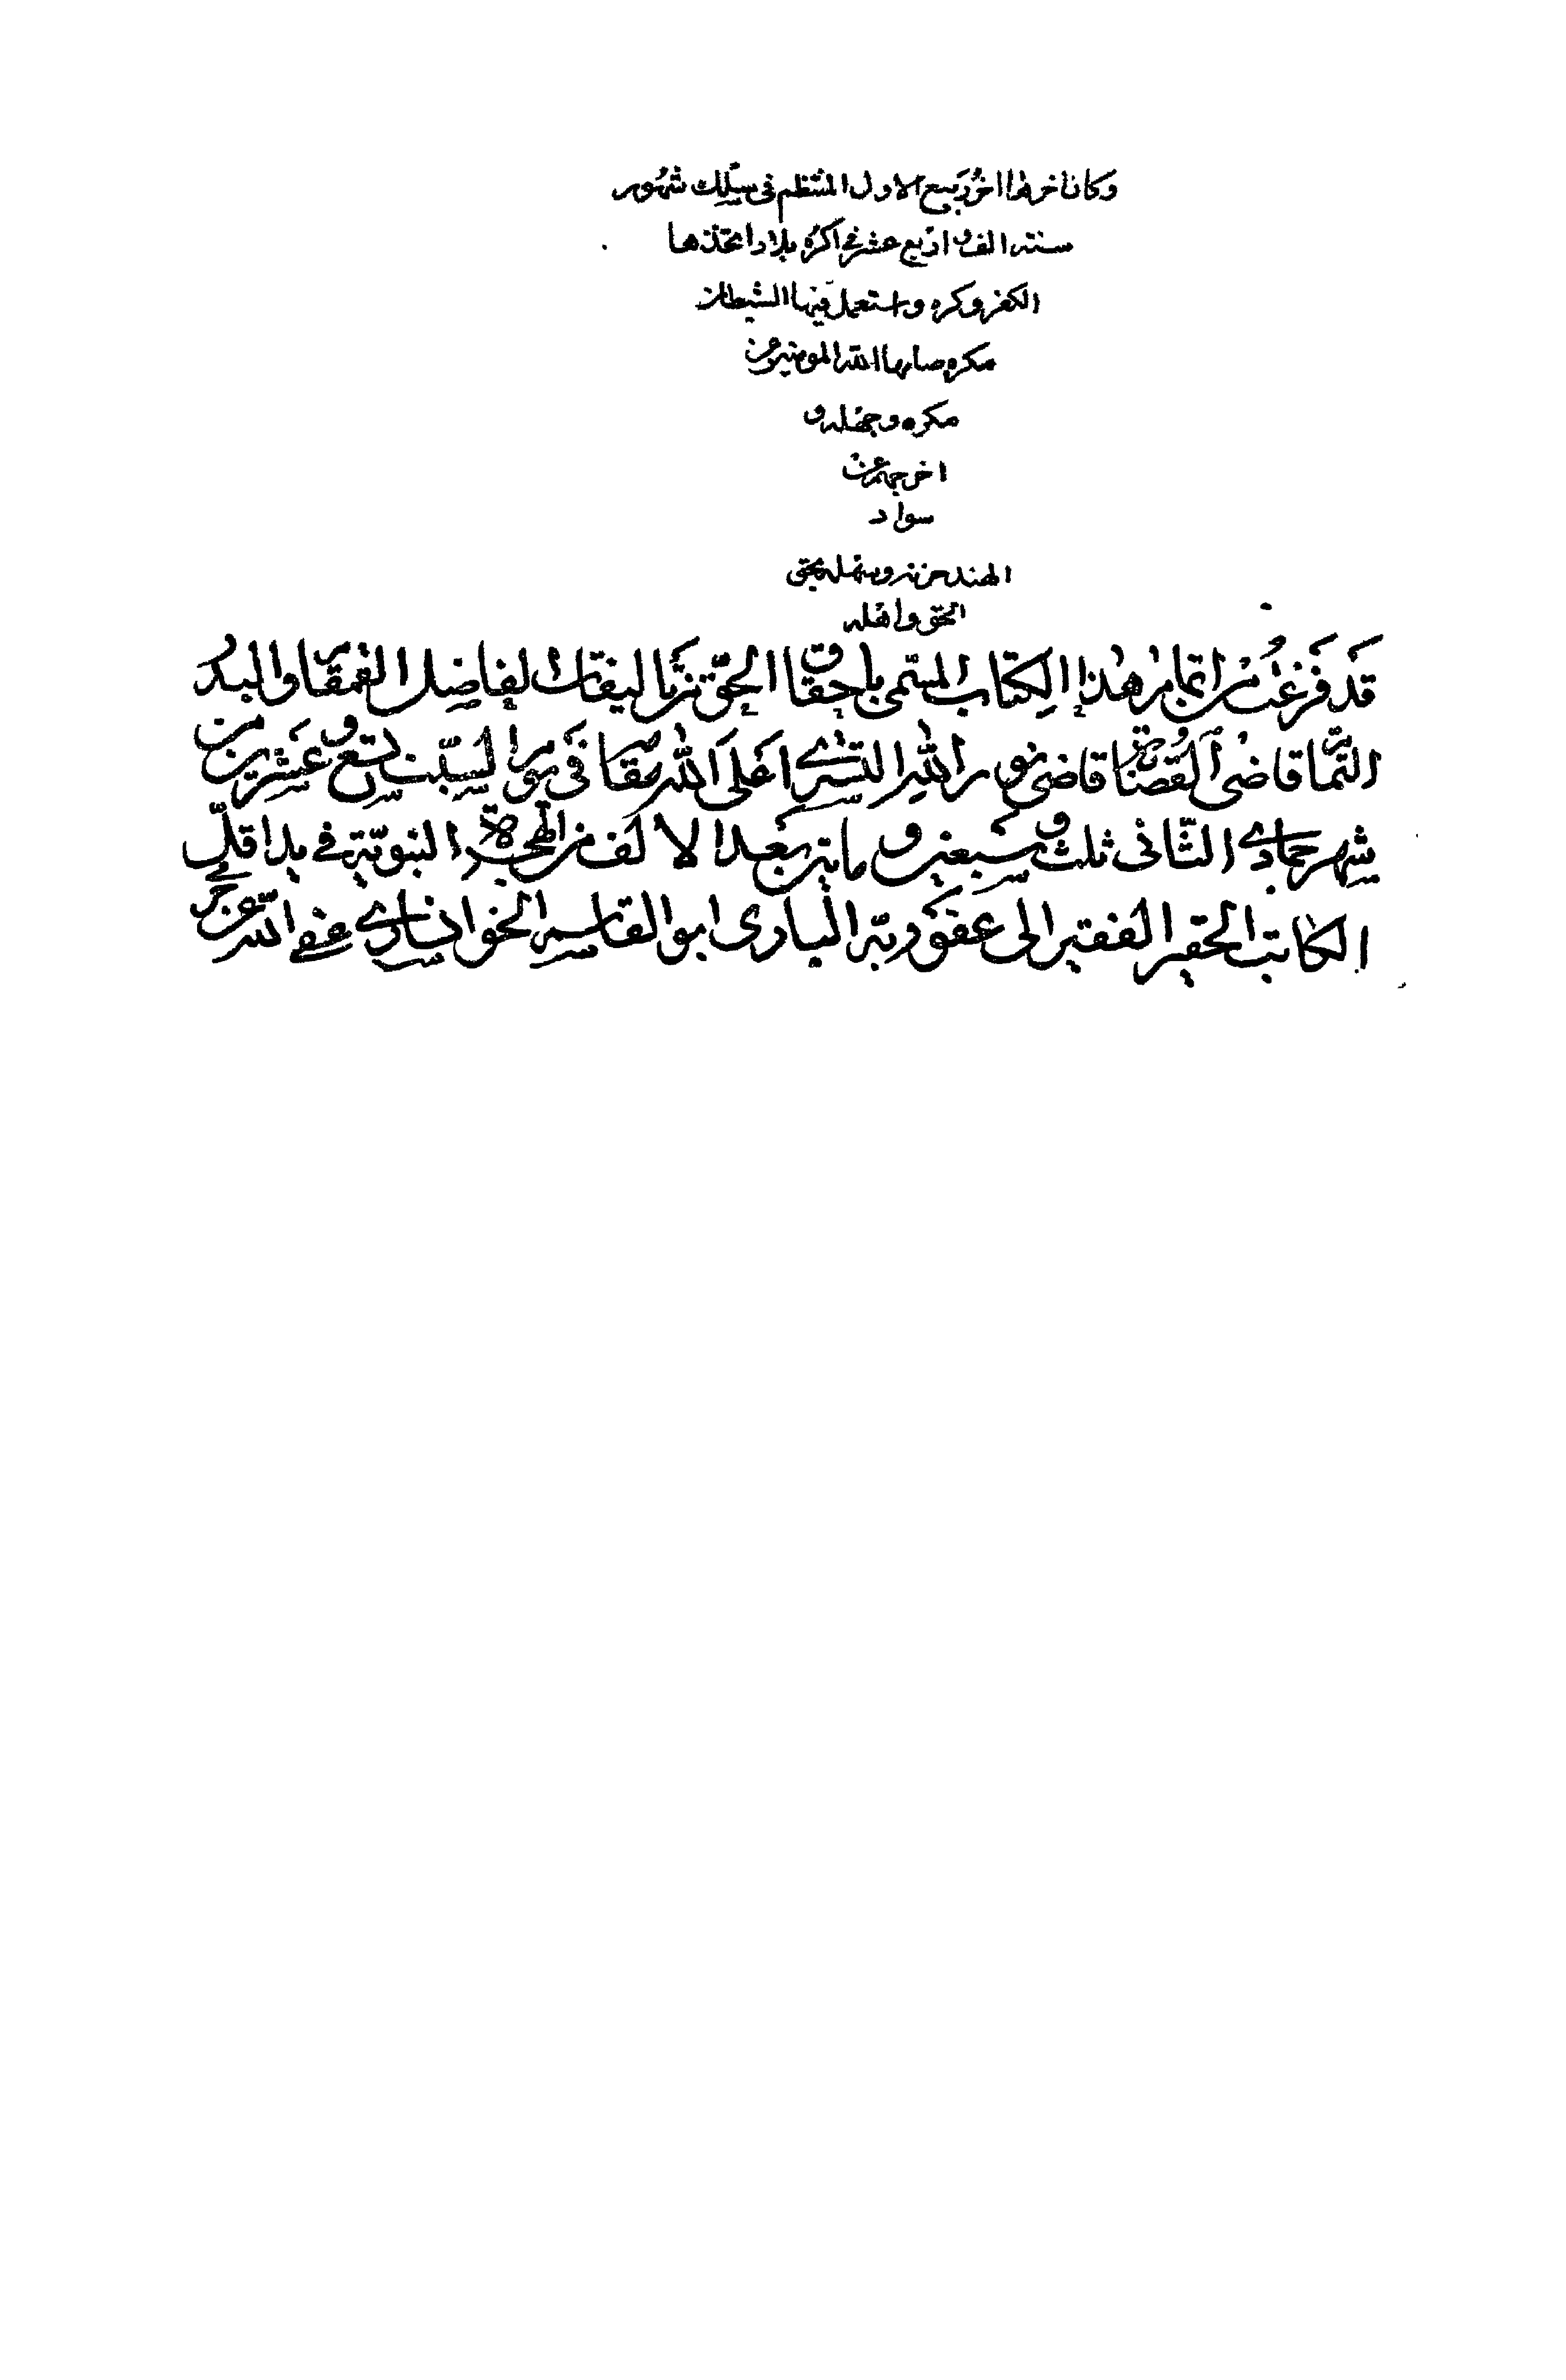 وكان اخرها اخر ربيع الاول المنتظم فى سلك شهور
سنته الف و اربع عشر فى اكره بلاد اتخذها
الكفر وكره واستعمل فيها الشيطان
مكره صانها الله المومنين عن
مكره وجهله و
اخرجهم عن
سواد
الهند حزنه وسهله بحق
الحق واهله
قد فرغت من اتمام هذا الكتاب المسمى باحقاق الحق من تاليفات الفاضل القمقام والبدر
التمام قاضى القضاة قاضى نور الله التستري اعلى الله مقامه فى يوم السبت تسع و عشرين من
شهر جمادي الثانى ثلث و سبعين و ماية بعد الالف من الهجرة النبوية فى يد اقل
الكاتب الحقير الفقير الى عفو ربه البارى ابو القاسم الخوانسارى عفى الله عن جرمه